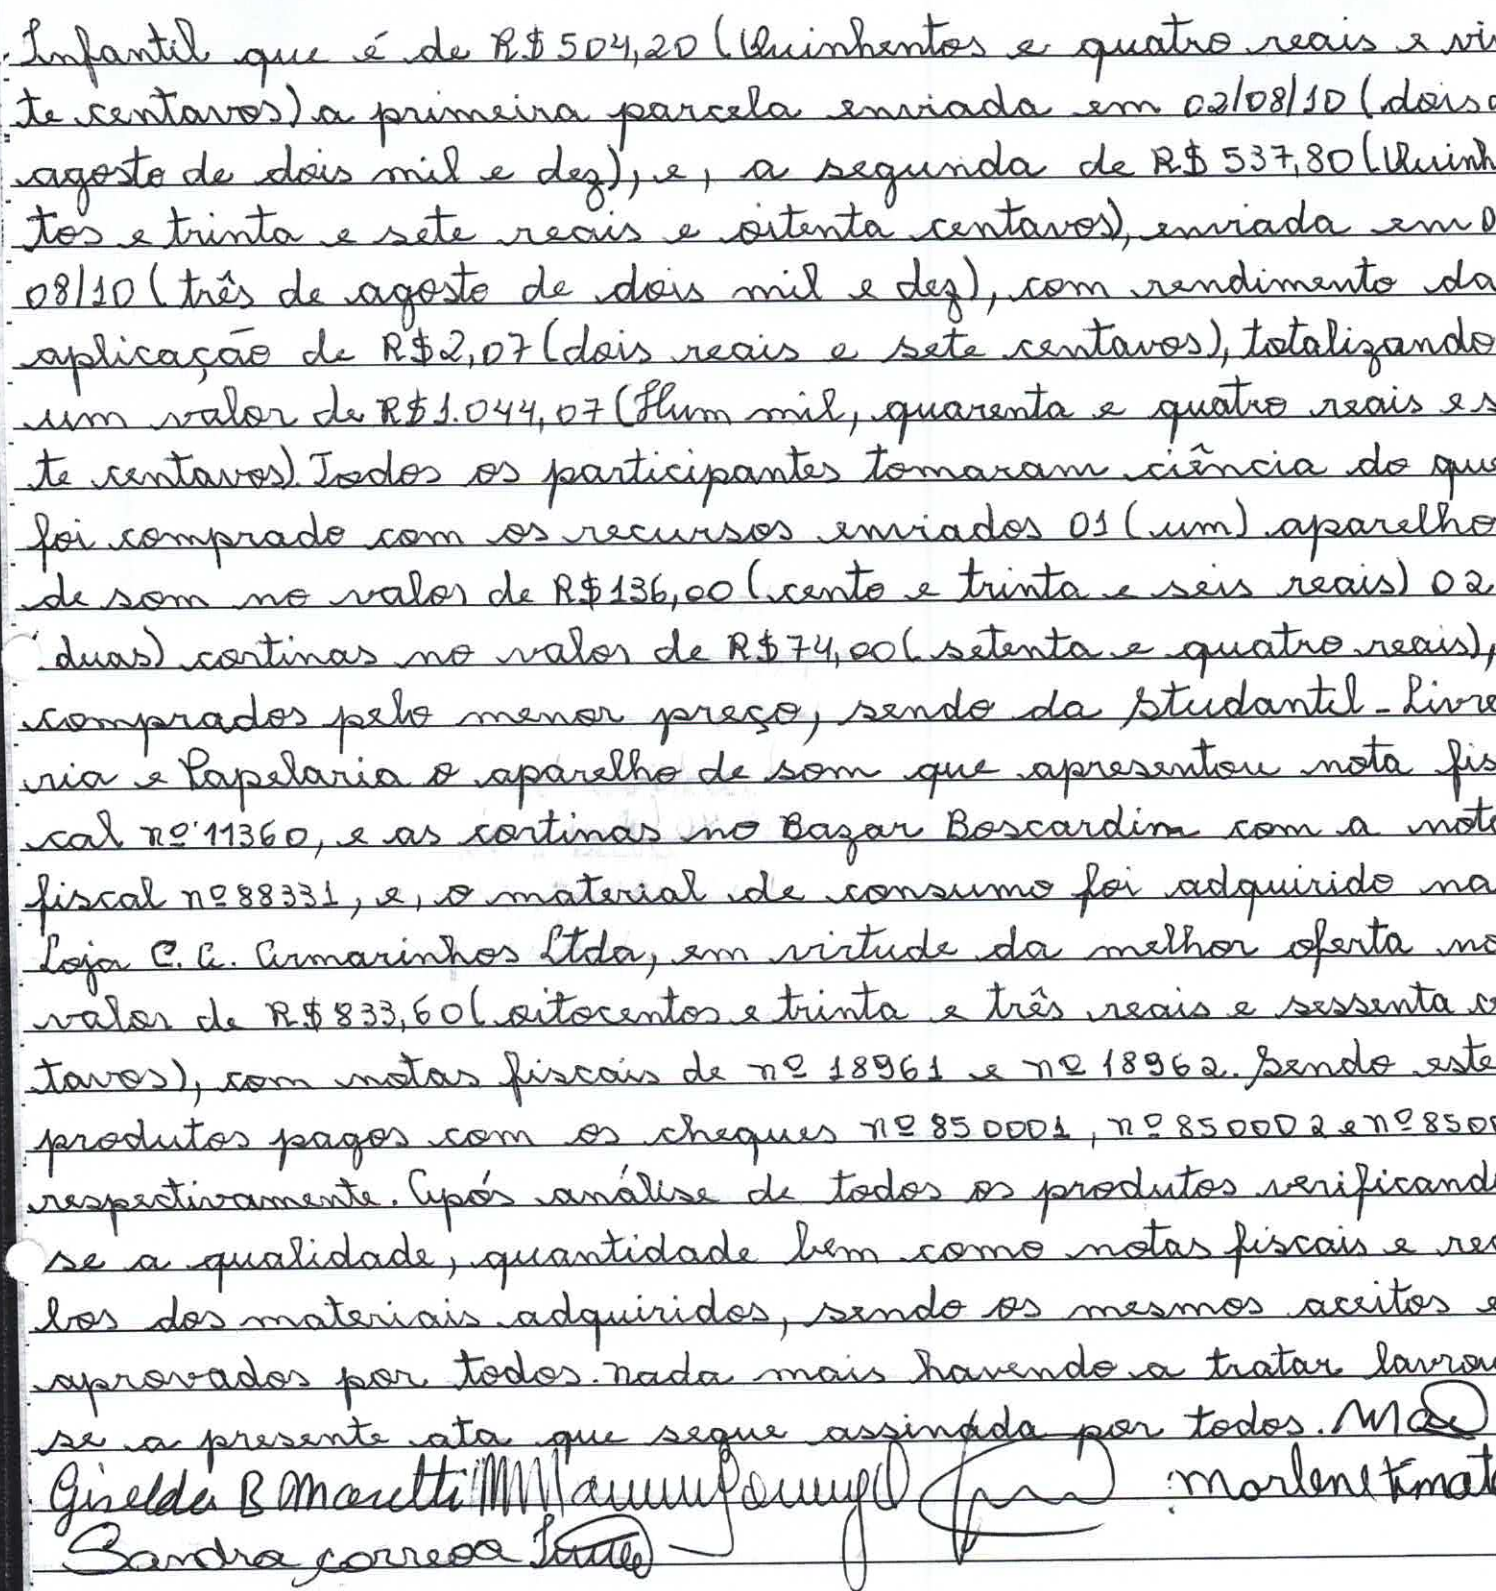 Infantil que é de R$ 504,20 (Quinhentos e quatro reais e vi
te centavos) a primeira parcela enviada em 02/08/10 (dois
agosto de dois mil e dez), e, a segunda de R$ 537,80 (Quinh
tos e trinta e sete reais e oitenta centavos), enviada em 0
08/10 (três de agosto de dois mil e dez), com rendimento da
aplicação de R$2,07 (dois reais e sete centavos), totalizando
um valor de R$1.044,07 (Hum mil, quarenta e quatro reais e s
te centavos). Todos os participantes tomaram ciência do que
foi comprado com os recursos enviados 01 (um) aparelho
de som no valor de R$136,00 (cento e trinta e seis reais) 02
duas) cortinas no valor de R$74,00 (setenta e quatro reais),
comprados pelo menor preço, sendo da Studantil - Livra
ria e Papelaria o aparelho de som que apresentou nota fis
cal nº 11360, e as cortinas no Bazar Boscardim com a nota
fiscal nº 88331, e, o material de consumo foi adquirido na
Loja C.C. Armarinhos Ltda, em virtude da melhor oferta no
valor de R$ 833,60 (oitocentos e trinta e três reais e sessenta c
tavos), com notas fiscais de nº 18961 e nº 18962. Sendo este
produtos pagos com os cheques nº 850001, nº 850002 e nº 8500
respectivamente. Após análise de todos os produtos verificand
se a qualidade, quantidade bem como notas fiscais e rec
bos dos materiais adquiridos, sendo os mesmos aceitos e
aprovados por todos. Nada mais havendo a tratar lavrou
se a presente ata que segue assinada por todos.
Giselda B Maretti Marlene
Sandra Correa